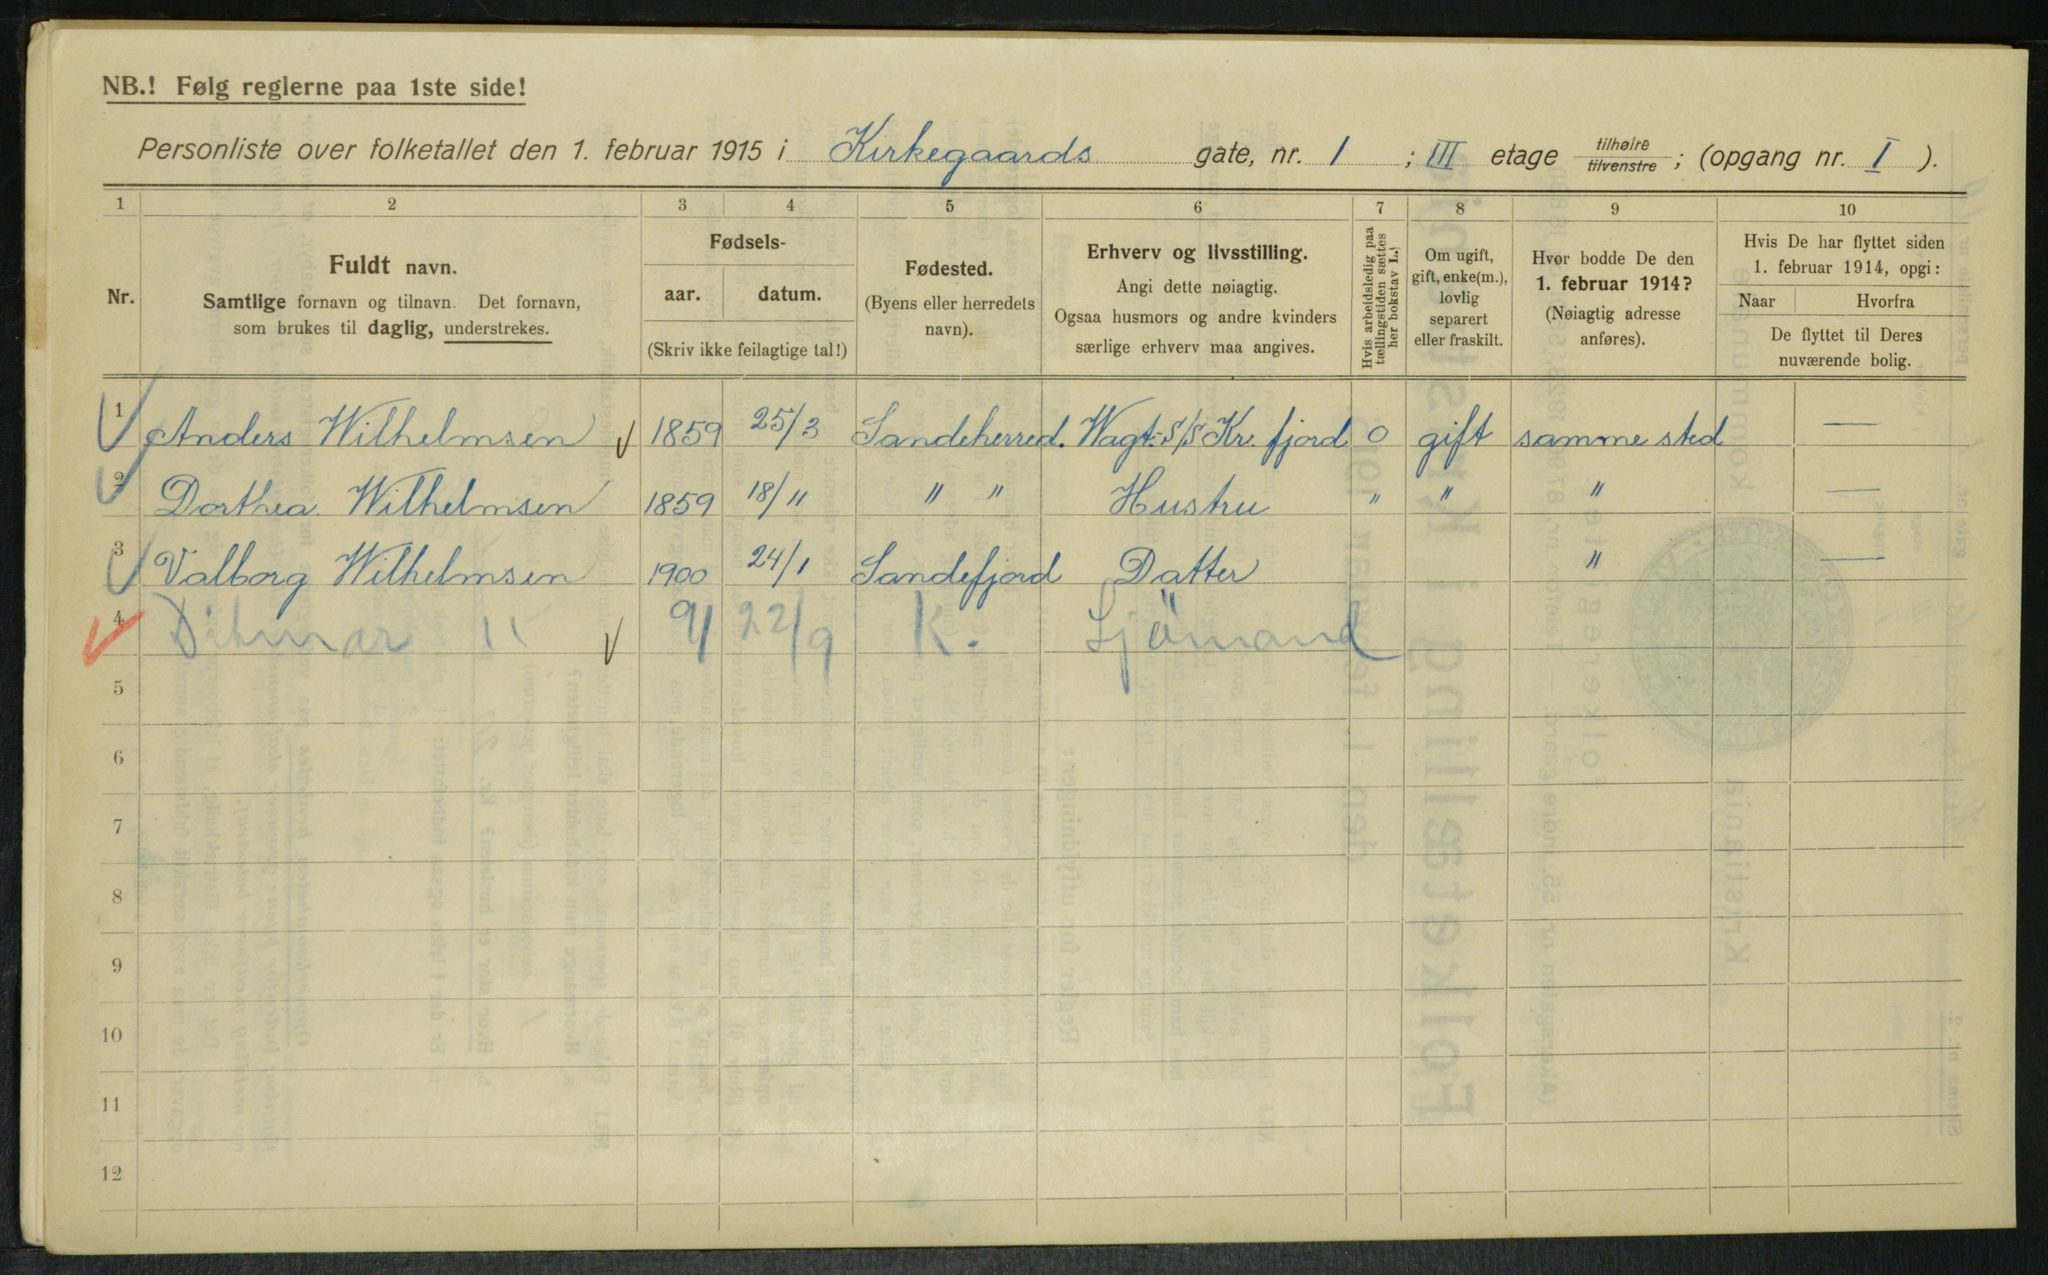 NB.! Følg reglerne paa 1ste side!
Personliste over folketallet den 1. februar 1915 i Kirkegaards gate, nr. 1 ; III etage tilhøire / tilvenstre ; (opgang nr. I ).
1 2 3 4 5 6 7 8 9 10
Nr.
Fuldt navn.
Samtlige fornavn og tilnavn. Det fornavn,
som brukes til daglig, understrekes.
Fødsels-
aar. datum.
(Skriv ikke feilagtige tal!)
Fødested.
(Byens eller herredets
navn).
Erhverv og livsstilling.
Angi dette nøiagtig.
Ogsaa husmors og andre kvinders
særlige erhverv maa angives.
Hvis arbeidsledig paa
tællingstiden sættes
her bokstav L.!
Om ugift,
gift, enke(m.),
lovlig
separert
eller fraskilt.
Hvor bodde De den
1. februar 1914?
(Nøiagtig adresse
anføres).
Hvis De har flyttet siden
1. februar 1914, opgi:
Naar Hvorfra
De flyttet til Deres
nuværende bolig.
1 Anders Wilhelmsen 1859 25/3 Sandeherred. Wagt. S/S Kr. fjord 0 gift samme sted —
2 Dorthea Wilhelmsen 1859 18/11 " " Hustru " " " —
3 Valborg Wilhelmsen 1900 24/1 Sandefjord Datter " —
4 Ditmar " 91 22/9 K. Sjömand
5
6
7
8
9
10
11
12